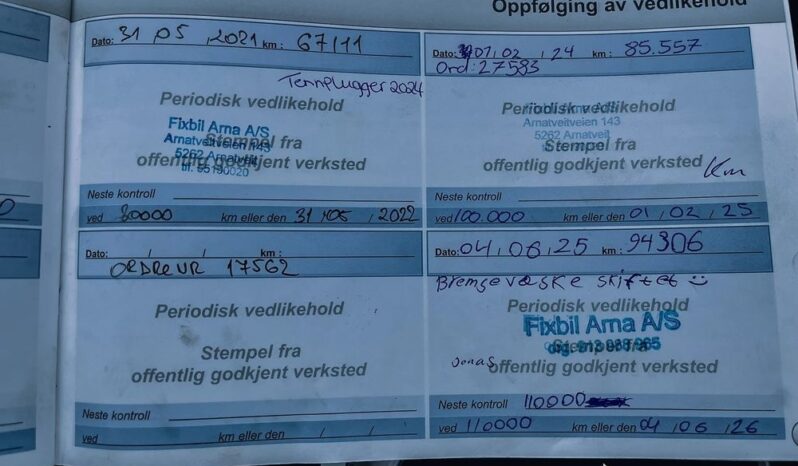 Oppfølging av vedlikehold
Dato: 31 05 , 2021 km : 67111
Tennplugger 2024
Periodisk vedlikehold
Fixbil Arna A/S
Arnatveitveien 143
5262 Arnatveit
Stempel fra
offentlig godkjent verksted
Neste kontroll
ved 80000 km eller den 31 , 05 , 2022
Dato: 01 , 02 , 24 km : 85.557
Ord: 27583
Periodisk vedlikehold
Fixbil Arna A/S
Arnatveitveien 143
5262 Arnatveit
Stempel fra
offentlig godkjent verksted
Km
Neste kontroll
ved 100.000 km eller den 01 , 02 , 25
Dato: / / km :
ORDREUR 17562
Periodisk vedlikehold
Stempel fra
offentlig godkjent verksted
Neste kontroll
ved km eller den / /
Dato: 04 , 06 , 25 km : 94306
Bremsevæske skiftet :)
Periodisk vedlikehold
Fixbil Arna A/S
Stempel fra
Jonas
offentlig godkjent verksted
Neste kontroll 110000
ved 110000 km eller den 04 , 06 , 26